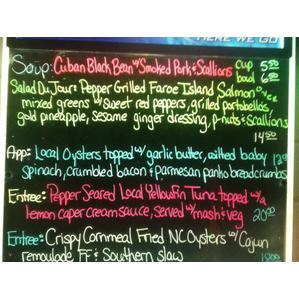 HERE WE GO
Soup: Cuban Black Bean w/ Smoked Pork & Scallions cup 5.50
bowl 6.50
Salad Du Jour: Pepper Grilled Faroe Island Salmon over
mixed greens w/ sweet red peppers, grilled portobellos,
gold pineapple, sesame ginger dressing, p-nuts & scallions
14.50
App: Local Oysters topped w/ garlic butter, wilted baby 12.00
spinach, crumbled bacon & parmesan panko breadcrumbs
Entree: Pepper Seared Local Yellowfin Tuna topped w/ a
lemon caper cream sauce, served w/ mash & veg 20.00
Entree: Crispy Cornmeal Fried NC Oysters w/ Cajun
remoulade, FF & Southern slaw